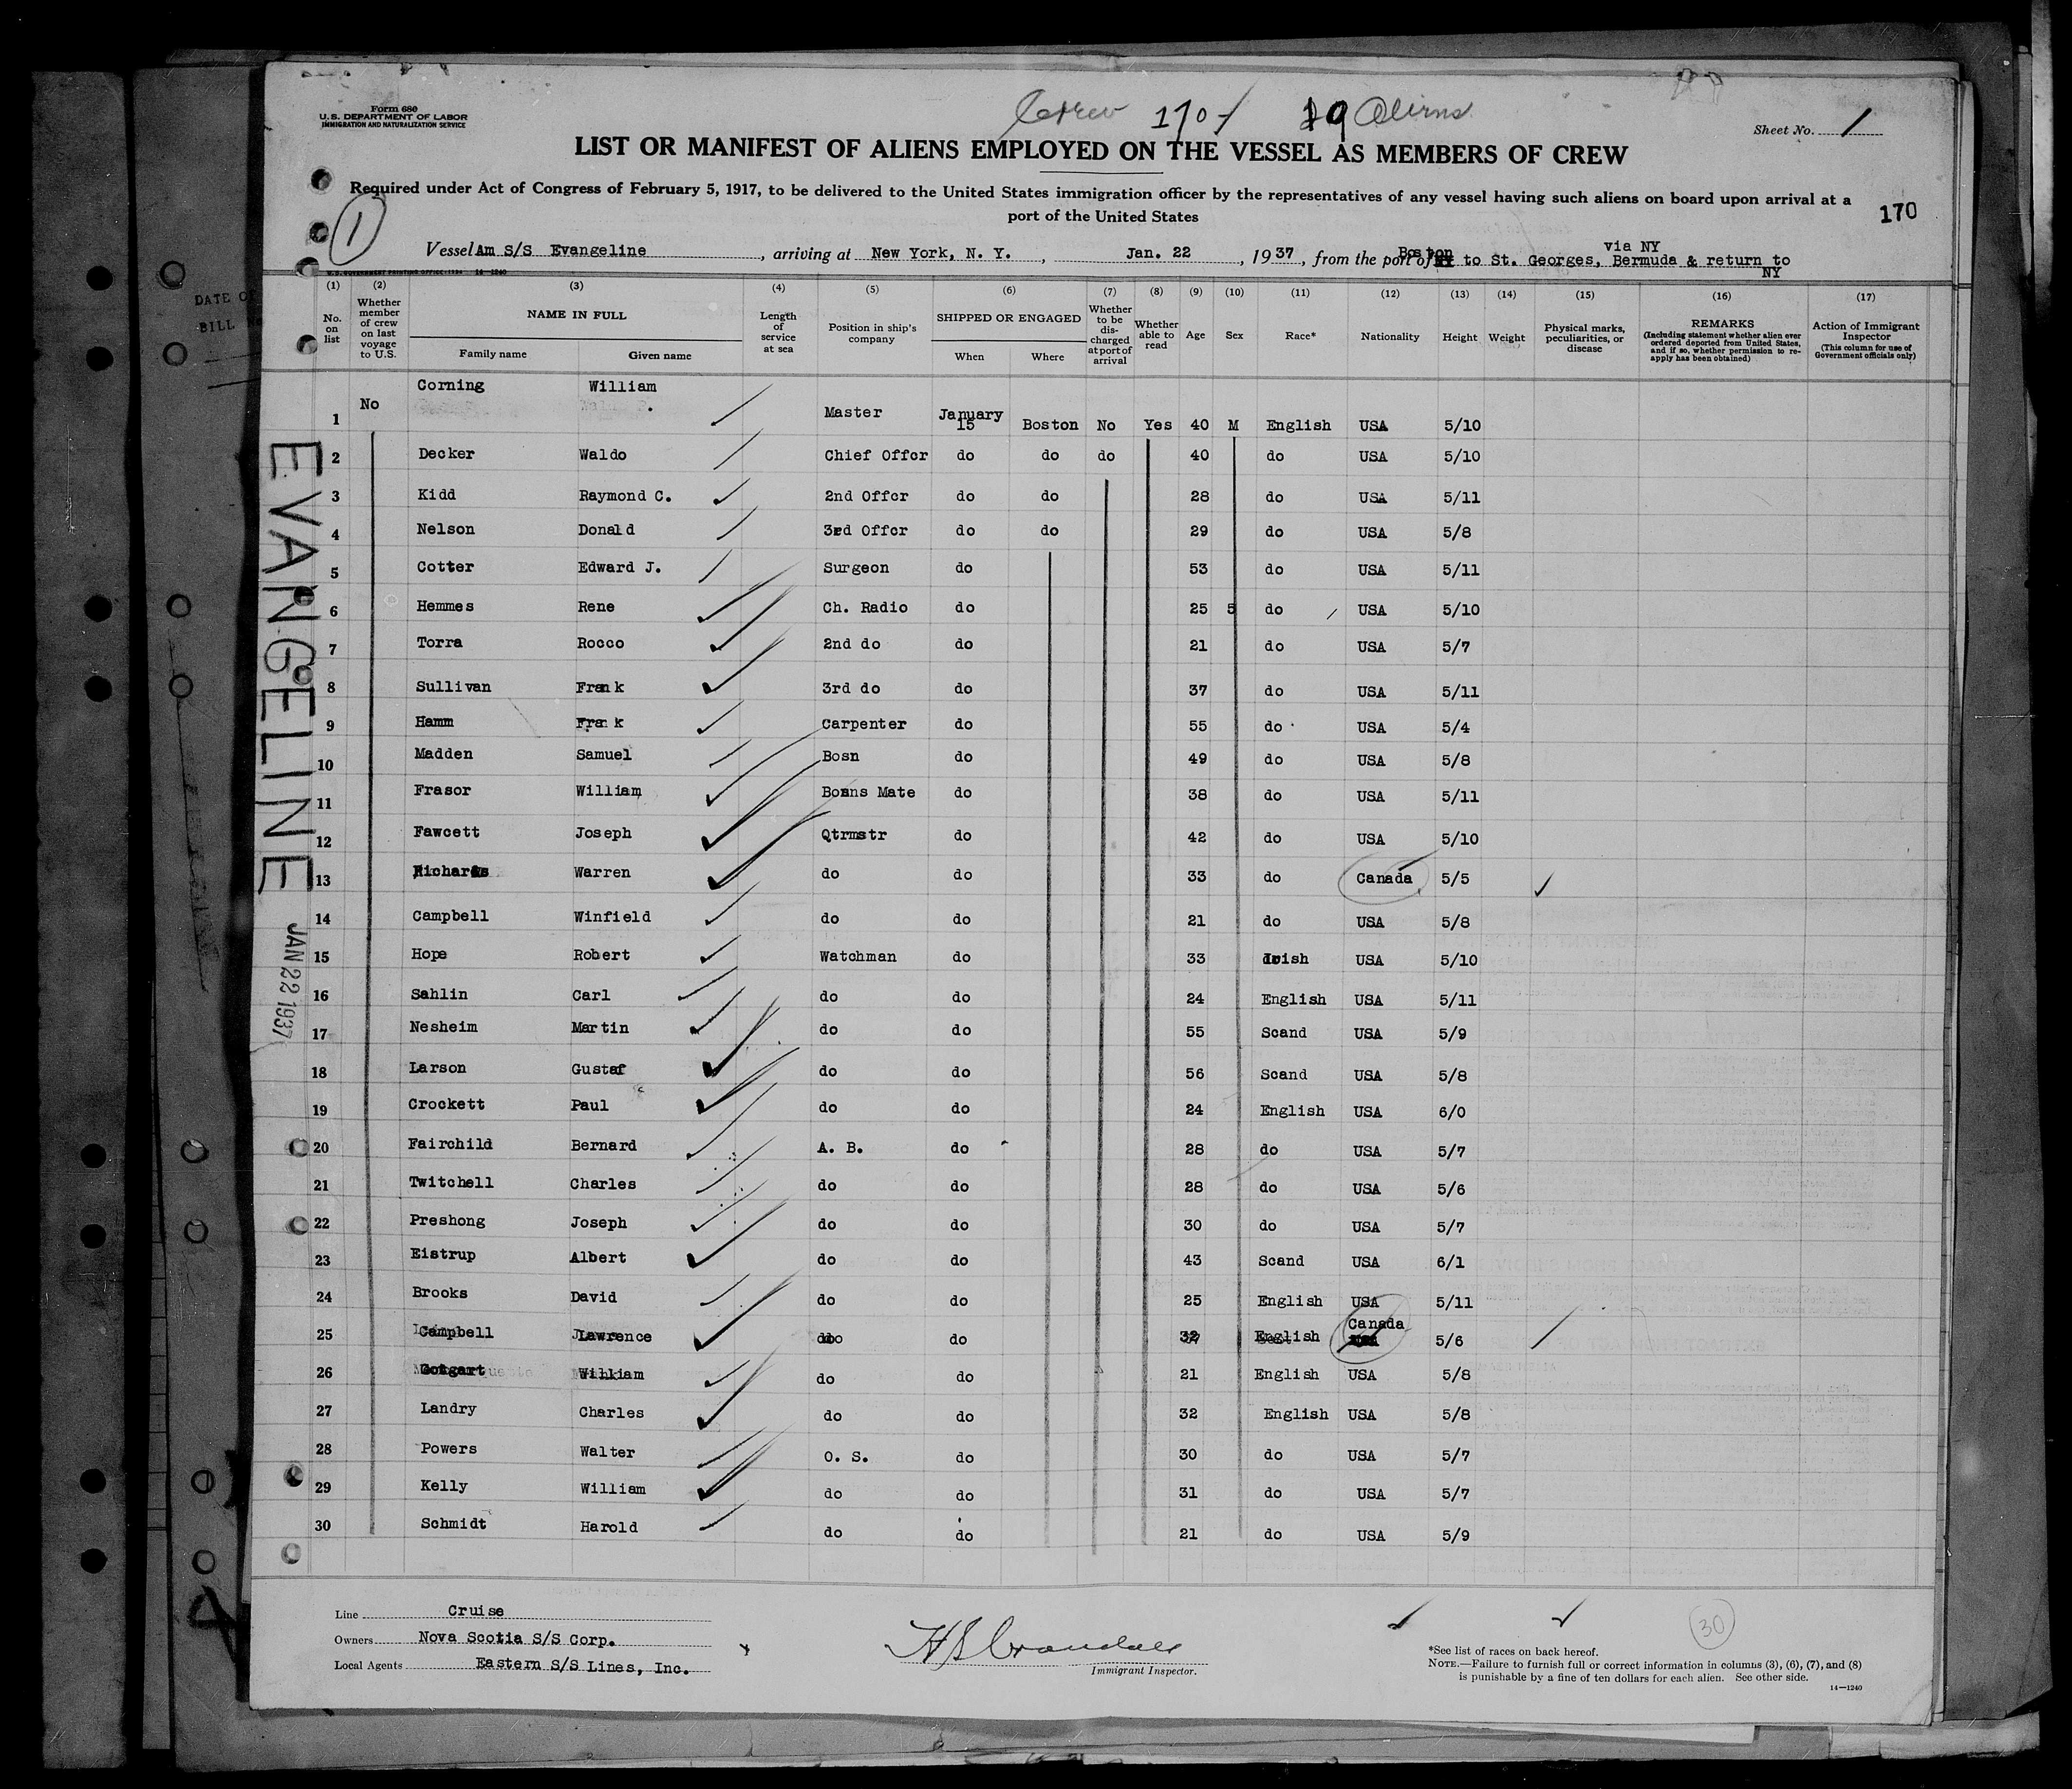 Form 680
U.S. DEPARTMENT OF LABOR
IMMIGRATION AND NATURALIZATION SERVICE
Crew 170 19 Aliens
Sheet No. 1
LIST OR MANIFEST OF ALIENS EMPLOYED ON THE VESSEL AS MEMBERS OF CREW
Required under Act of Congress of February 5, 1917, to be delivered to the United States immigration officer by the representatives of any vessel having such aliens on board upon arrival at a
port of the United States
170
1
Vessel Am S/S Evangeline, arriving at New York, N. Y., Jan. 22, 1937, from the port of Boston to St. Georges, Bermuda & return to NY via NY
U.S. GOVERNMENT PRINTING OFFICE: 1934 14-1240
(1) (2) (3) (4) (5) (6) (7) (8) (9) (10) (11) (12) (13) (14) (15) (16) (17)
No. on list
Whether member of crew on last voyage to U.S.
NAME IN FULL
Family name Given name
Length of service at sea
Position in ship's company
SHIPPED OR ENGAGED
When Where
Whether to be discharged at port of arrival
Whether able to read
Age
Sex
Race*
Nationality
Height
Weight
Physical marks, peculiarities, or disease
REMARKS
(Including statement whether alien ever ordered deported from United States, and if so, whether permission to reapply has been obtained)
Action of Immigrant Inspector
(This column for use of Government officials only)
1 No Corning William Master January 15 Boston No Yes 40 M English USA 5/10
2 Decker Waldo Chief Offcr do do do 40 do USA 5/10
3 Kidd Raymond C. 2nd Offcr do do 28 do USA 5/11
4 Nelson Donald 3rd Offcr do do 29 do USA 5/8
5 Cotter Edward J. Surgeon do 53 do USA 5/11
6 Hemmes Rene Ch. Radio do 25 5 do USA 5/10
7 Torra Rocco 2nd do do 21 do USA 5/7
8 Sullivan Frank 3rd do do 37 do USA 5/11
9 Hamm Frank Carpenter do 55 do USA 5/4
10 Madden Samuel Bosn do 49 do USA 5/8
11 Frasor William Bosns Mate do 38 do USA 5/11
12 Fawcett Joseph Qtrmstr do 42 do USA 5/10
13 Richards Warren do do 33 do Canada 5/5
14 Campbell Winfield do do 21 do USA 5/8
15 Hope Robert Watchman do 33 Irish USA 5/10
16 Sahlin Carl do do 24 English USA 5/11
17 Nesheim Martin do do 55 Scand USA 5/9
18 Larson Gustaf do do 56 Scand USA 5/8
19 Crockett Paul do do 24 English USA 6/0
20 Fairchild Bernard A. B. do 28 do USA 5/7
21 Twitchell Charles do do 28 do USA 5/6
22 Preshong Joseph do do 30 do USA 5/7
23 Eistrup Albert do do 43 Scand USA 6/1
24 Brooks David do do 25 English USA 5/11
25 Campbell Lawrence do do English Canada 5/6
26 William do do 21 English USA 5/8
27 Landry Charles do do 32 English USA 5/8
28 Powers Walter O. S. do 30 do USA 5/7
29 Kelly William do do 31 do USA 5/7
30 Schmidt Harold do do 21 do USA 5/9
EVANGELINE
JAN 22 1937
DATE OF
BILL
Line Cruise
Owners Nova Scotia S/S Corp.
Local Agents Eastern S/S Lines, Inc.
Immigrant Inspector.
30
*See list of races on back hereof.
NOTE.—Failure to furnish full or correct information in columns (3), (6), (7), and (8)
is punishable by a fine of ten dollars for each alien. See other side.
14—1240